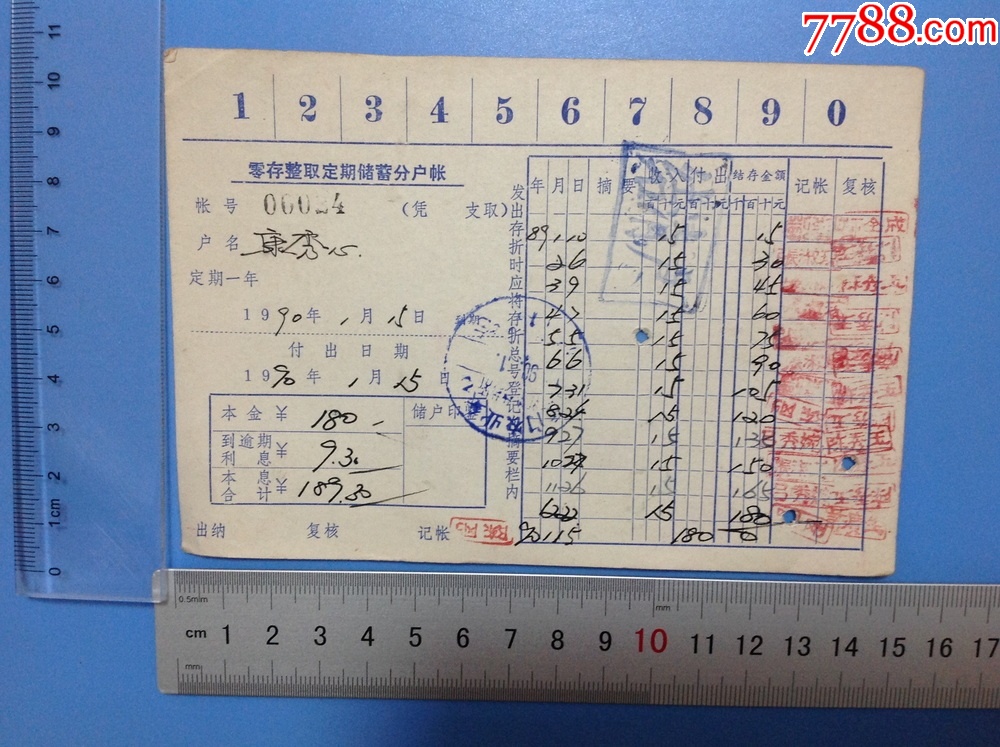 7788.com
1 2 3 4 5 6 7 8 9 0
零存整取定期储蓄分户帐
帐号 00024 (凭 支取)
户名 康秀心
定期一年
1990年1月15日
付出日期
1990年1月15日
本金¥ 180- 储户印
到逾期利息¥ 9.30
本息合计¥ 189.30
出纳 复核 记帐
发出存折时应将存折总号登记摘要栏内
年 月 日 摘要 收入 付出 结存金额 记帐 复核
百十元 百十元 千百十元
89 1 10 15 15
2 6 15 30
3 9 15 45
4 7 15 60
5 5 15 75
6 6 15 90
7 31 15 105
8 24 15 120
9 27 15 135
10 27 15 150
11 26 15 165
15 180
90 1 15 180 0
11
10
9
8
7
6
5
4
3
2
1cm
0
0.5mm
mm
cm 1 2 3 4 5 6 7 8 9 10 11 12 13 14 15 16 17
mm